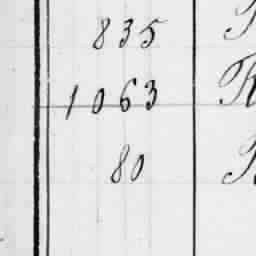 835
1063
80